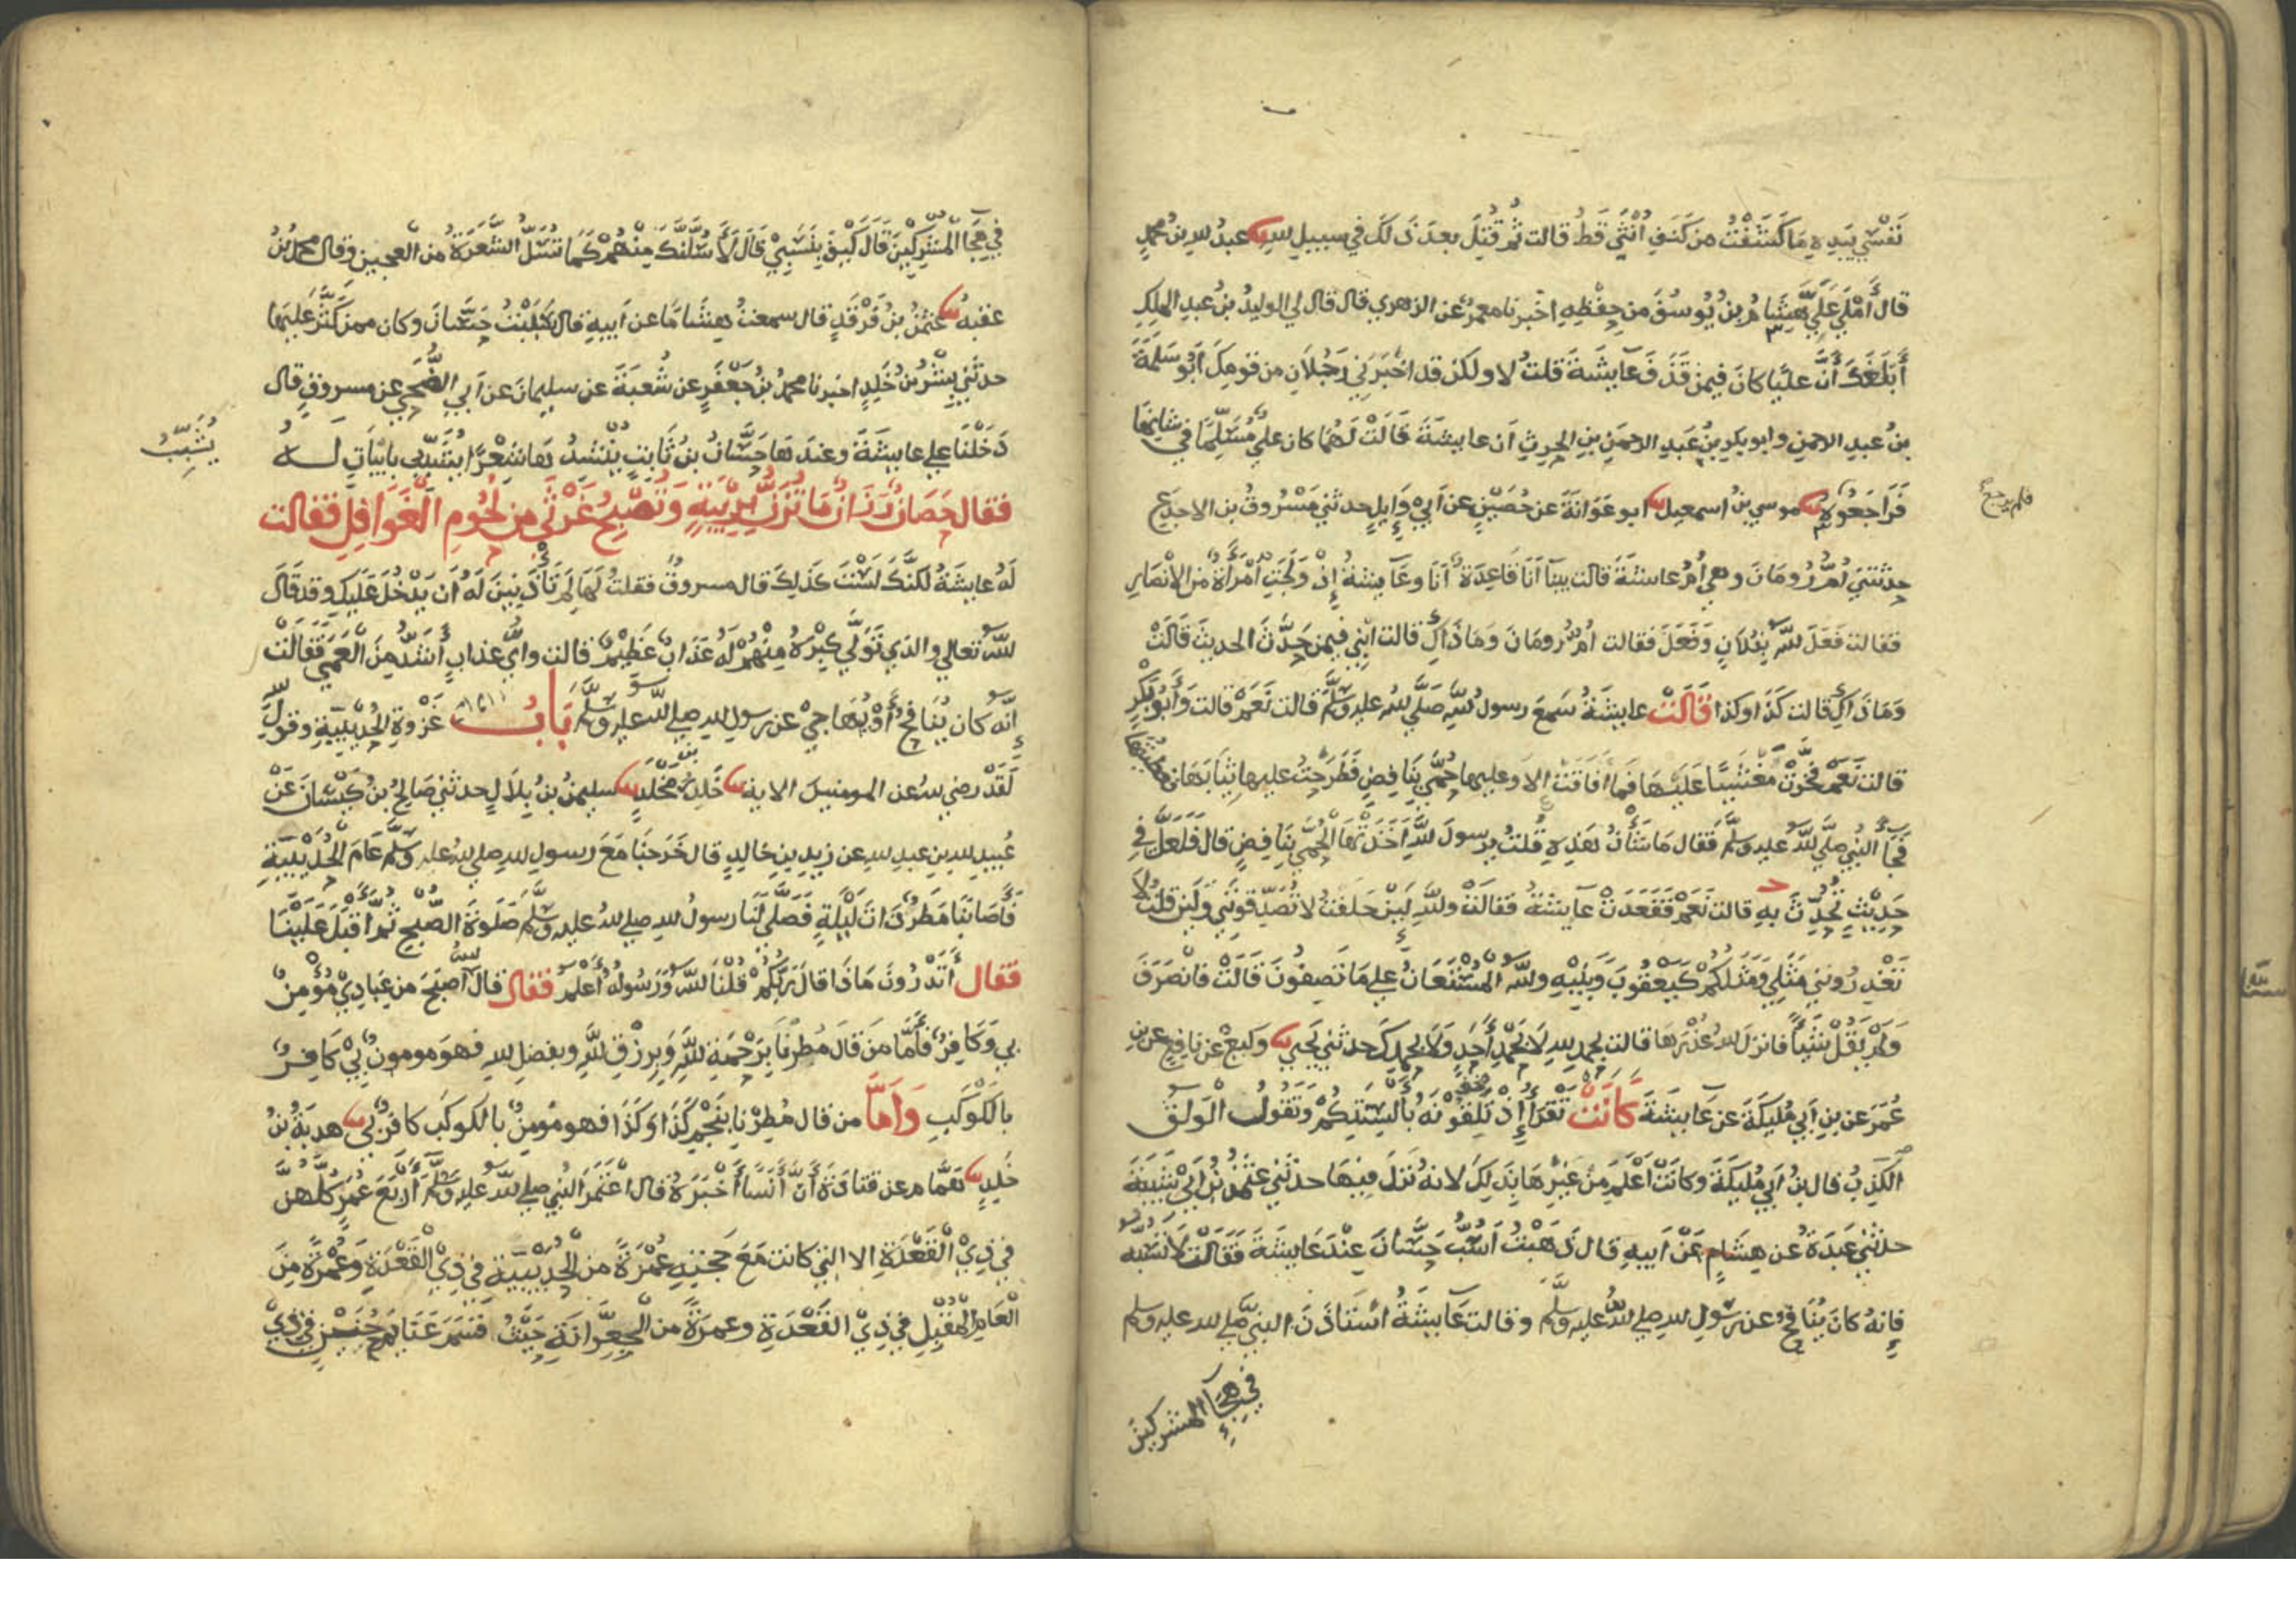 نَفْسِي بِيَدِهِ مَا كَشَفْتُ مِن كَنَفِ أُنْثَى قَطُّ قالت ثُمَّ قُتِلَ بعدَ ذَلكَ في سبيل الله عبدُ الله بنُ محمدٍ
قال أَمْلَى عَلَيَّ هِشَامُ بنُ يُوسُفَ مِن حِفْظِهِ اخبرنا معمرٌ عن الزهري قال قال لي الوليدُ بنُ عبدِ الملكِ
أَبَلَغَكَ أَنَّ عليًّا كانَ فيمن قَذَفَ عَايِشَةَ قلتُ لا ولكن قد اخْبَرَنِي رَجُلَانِ من قومِكَ أَبُو سَلَمَةَ
بنُ عبدِ الرحمنِ وابو بكر بنُ عَبدِ الرحمنِ بنِ الحرثِ أن عايشةَ قَالَتْ لَهُمَا كان عليٌّ مُسَلِّمًا في شانِهَا
فَرَاجَعُوهُ موسي بنُ اسمعيل ابو عَوَانَةَ عن حُصَيْنٍ عن أبي وَايِلٍ حدثني مَسْرُوقُ بن الاجدَعِ
فلم يرجع
حدثتني أُمُّ رُومَانَ وهي أمُّ عايشةَ قالت بينَا أَنَا قَاعِدَةٌ أَنَا وعَايشةُ إِذْ وَلَجَتِ امْرَأَةٌ من الانصارِ
فقالت فَعَلَ اللهُ بِفُلَانٍ وَفَعَلَ فقالت أمُّ رومَانَ وَمَا ذَاكِ قالت ابْنِي فيمن حَدَّثَ الحديثَ قَالَتْ
وَمَا ذَاكِ قالت كَذَا وكذا قَالَتْ عايشَةُ سَمِعَ رسولُ اللهِ صَلَّي اللهُ عليه وسَلَّمَ قالت نَعَمْ قالت وَأَبُو بَكْرٍ
قالت نَعَمْ فَخَرَّتْ مَغْشِيًّا عَلَيْهَا فَمَا أَفَاقَتْ الا وعليها حُمَّي بِنَافِضٍ فَطَرَحْتُ عليها ثِيَابَهَا فغَطَّيْتُهَا
فَجَاءَ النبيُّ صَلَّي اللهُ عليه وسلَّمَ فَقال مَا شَأْنُ هَذِهِ قُلتُ يرسولَ اللهِ أَخَذَتْهَا الْحُمَّي بِنَافِضٍ قال فَلَعَلَّ في
حَدِيثٍ تُحُدِّثَ بِهِ قالت نَعَمْ فَقَعَدَتْ عَايشةُ فقالَتْ واللهِ لَيِنْ حَلَفْتُ لا تُصَدِّقونَنِي ولَيِن قلتُ لا
تَعْذِرُونَنِي مَثَلِي وَمَثَلُكُمْ كَيَعْقُوبَ وَبَنِيهِ واللهُ المُسْتَعَانُ عَلي مَا تَصِفُونَ قَالَتْ فانْصَرَفَ
وَلَمْ يَقُلْ شَيْئًا فانزلَ اللهُ عُذْرَهَا قالت بحمدِ اللهِ لَا بِحَمْدِ أَحَدٍ وَلَا بِحَمْدِكَ حدثني يَحْيَي وكيعٌ عن نافِعٍ عن بنِ
عُمَرَ عن بنِ أَبي مُلَيكَةَ عن عَايشَةَ كَانَتْ تَقْرَأُ إِذْ تَلِقُونَهُ بِأَلْسِنَتِكُمْ وَتَقُولُ الْوَلْقُ
الكَذِبُ قال بنُ أَبي مُلَيكَةَ وكَانَتْ أَعْلَمَ مِنْ غَيْرِهَا بِذَلِكَ لانهُ نَزَلَ فِيهَا حدثني عثمنُ بنُ أبي شَيْبَةَ
حدثني عَبدَةُ عن هِشَامٍ عَنْ أَبيهِ قال ذَهَبْتُ أَسُبُّ حَسَّانَ عِنْدَ عَايشَةَ فَقَالَتْ لَا تَسُبَّهُ
فإنهُ كانَ يُنَافِحُ عن رَسُولِ اللهِ صلي اللهُ عليه وسَلَّمَ وقالت عَايشَةُ استَاذَنَ النبيَّ صَلي الله عليه وسلم
في هِجَاءِ المشركين
في هِجَاءِ المُشْرِكِينَ قَالَ كَيْفَ بِنَسَبِي قَالَ لَأَسُلَّنَّكَ مِنْهُمْ كَمَا تُسَلُّ الشَّعَرَةُ من العجين وقال محمدُ بنُ
عقبةَ عثمنُ بنُ فَرْقَدٍ قال سمعتُ هِشَامًا عن أَبيهِ قال سَبَبْتُ حَسَّانَ وكان ممن كَثَّرَ عَلَيهَا
حدثني بِشْرُ بنُ خَلِدٍ اخبرنا محمدُ بنُ جَعْفَرٍ عن شُعبَةَ عن سليمانَ عن أَبي الضُّحَي عن مسروقٍ قال
دَخَلْنَا علي عايشَةَ وعندَهَا حَسَّانُ بنُ ثَابِتٍ يُنْشِدُ هَا شِعْرًا يُشَبِّبُ بابياتٍ لَهُ
يُشَبِّبُ
فقال حَصَانٌ رَزَانٌ مَا تُزَنُّ بِرِيبَةٍ وَتُصْبِحُ غَرْثَى من لُحُومِ الْغَوَافِلِ فقالت
لَهُ عايشَةُ لكنَّكَ لَسْتَ كذلكَ قال مسروقٌ فقلتُ لَهَا لِمَ تَأْذَنِينَ لَهُ أَن يَدْخُلَ عَلَيكِ وقد قَالَ
اللهُ تعالي والذي تَوَلَّي كِبْرَهُ مِنْهُمْ لَهُ عَذَابٌ عَظِيمٌ قالت وأيُّ عذابٍ أَشَدُّ مِنَ الْعَمَي فَقَالَتْ
إِنَّهُ كان يُنَافِحُ أَوْ يُهَاجِي عن رسولِ اللهِ صلي الله عليه وسلم بَابُ غَزْوَةِ الْحُدَيْبِيَةِ وقولِ اللهِ
لَقَدْ رضي اللهُ عن المومنين الاية خَلِدُ بنُ مَخْلَدٍ سليمنُ بنُ بِلَالٍ حدثني صَالِحُ بنُ كَيْسَانَ عَنْ
عُبيدِ اللهِ بنِ عبدِ اللهِ عن زيدِ بنِ خالدٍ قال خَرَجنَا مَعَ رسولِ اللهِ صلي اللهُ عليه وسَلَّمَ عَامَ الْحُدَيْبِيَةِ
فَأَصَابَنَا مَطَرٌ ذَاتَ لَيْلَةٍ فَصَلَّي لَنَا رسولُ اللهِ صلي اللهُ عليه وسَلَّمَ صَلَوةَ الصُّبْحِ ثُمَّ أَقْبَلَ عَلَيْنَا
فقال أَتَدْرُونَ مَاذَا قال رَبُّكُمْ قُلْنَا اللهُ وَرَسُولُهُ أَعْلَمُ فَقَالَ قَالَ اللهُ أَصْبَحَ من عِبَادِي مُؤْمِنٌ
بي وَكَافِرٌ فَأَمَّا مَن قَالَ مُطِرْنَا بِرَحْمَةِ اللهِ وَبِرِزْقِ اللهِ وبفضلِ اللهِ فهوَ مومنٌ بِي كَافِرٌ
بالكَوْكَبِ وَأَمَّا من قال مُطِرْنَا بِنَجْمِ كَذَا وكَذَا فهو مُومِنٌ بالكوكبِ كافرٌ بي هدبَةُ بنُ
خَلِدٍ هَمَّامٌ عن قتادَةَ أَنَّ أَنَسًا أَخْبَرَهُ قال اعْتَمَرَ النبيُّ صلي اللهُ عليه وسَلَّمَ أَرْبَعَ عُمَرٍ كُلُّهُنَّ
في ذِي الْقَعْدَةِ الا التي كانت مَعَ حَجَّتِهِ عُمْرَةً من الْحُدَيْبِيَةِ في ذِي القَعْدَةِ وَعُمْرَةً مِنَ
الْعَامِ الْمُقْبِلِ في ذِي القَعْدَةِ وعمرَةً من الجِعِرَّانَةِ حَيْثُ قَسَمَ غَنَايِمَ حُنَيْنٍ في ذِي